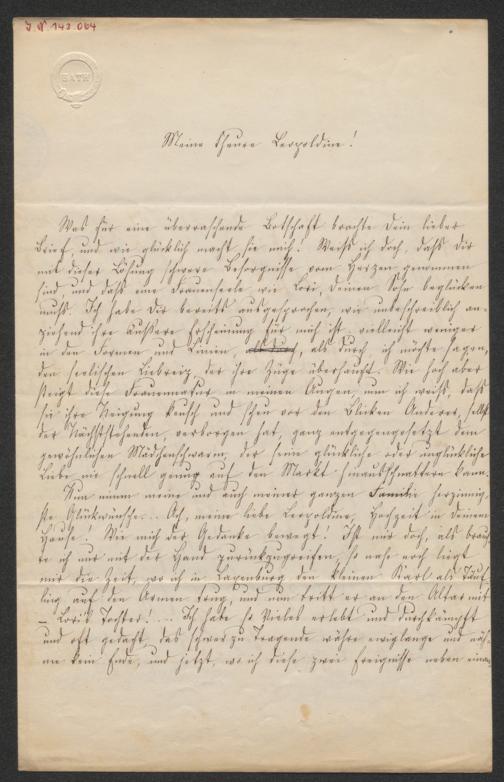 I N 143.064
BATH
Meine theure Leopoldine!
Was für eine überraschende Botschaft brachte Dein lieber
Brief, und wie glücklich macht sie mich! Weiß ich doch, daß Dir
mit dieser Lösung schwere Besorgnisse vom Herzen genommen
sind, und daß eine Frauenseele wie Lori, Deinen Sohn beglücken
muß. Ich habe Dir bereits ausgesprochen, wie unbeschreiblich an-
ziehend ihre äußere Erscheinung für mich ist, vielleicht weniger
in den Formen und Linien, als durch, ich möchte sagen,
den seelischen Liebreiz, der ihre Züge überhaucht. Wie hoch aber
steigt diese Frauennatur in meinen Augen, nun ich weiß, daß
sie ihre Neigung keusch und scheu vor den Blicken Anderer, selbst
der Nächststehenden, verborgen hat, ganz entgegengesetzt dem
gewöhnlichen Mädchenschwarm, der seine glückliche oder unglückliche
Liebe nie schnell genug auf den Markt hinausschnattern kann.
Nun nimm meine und auch meiner ganzen Familie herzinnig-
ste Glückwünsche... Ach, meine liebe Leopoldine, Hochzeit in Deinem
Hause! Wie mich der Gedanke bewegt! Ist mir doch, als brauch-
te ich nur mit der Hand zurückzugreifen, so nahe noch liegt
mir die Zeit, wo ich in Laxenburg den kleinen Karl als Täuf-
ling auf den Armen trug, und nun tritt er an den Altar mit
– Lori's Tochter!... Ich habe so Vieles erlebt und durchkämpft
und oft gedacht, das schwer zu Tragende währe ewiglange und näh-
me kein Ende, und jetzt, wo ich diese zwei Ereignisse neben einan-